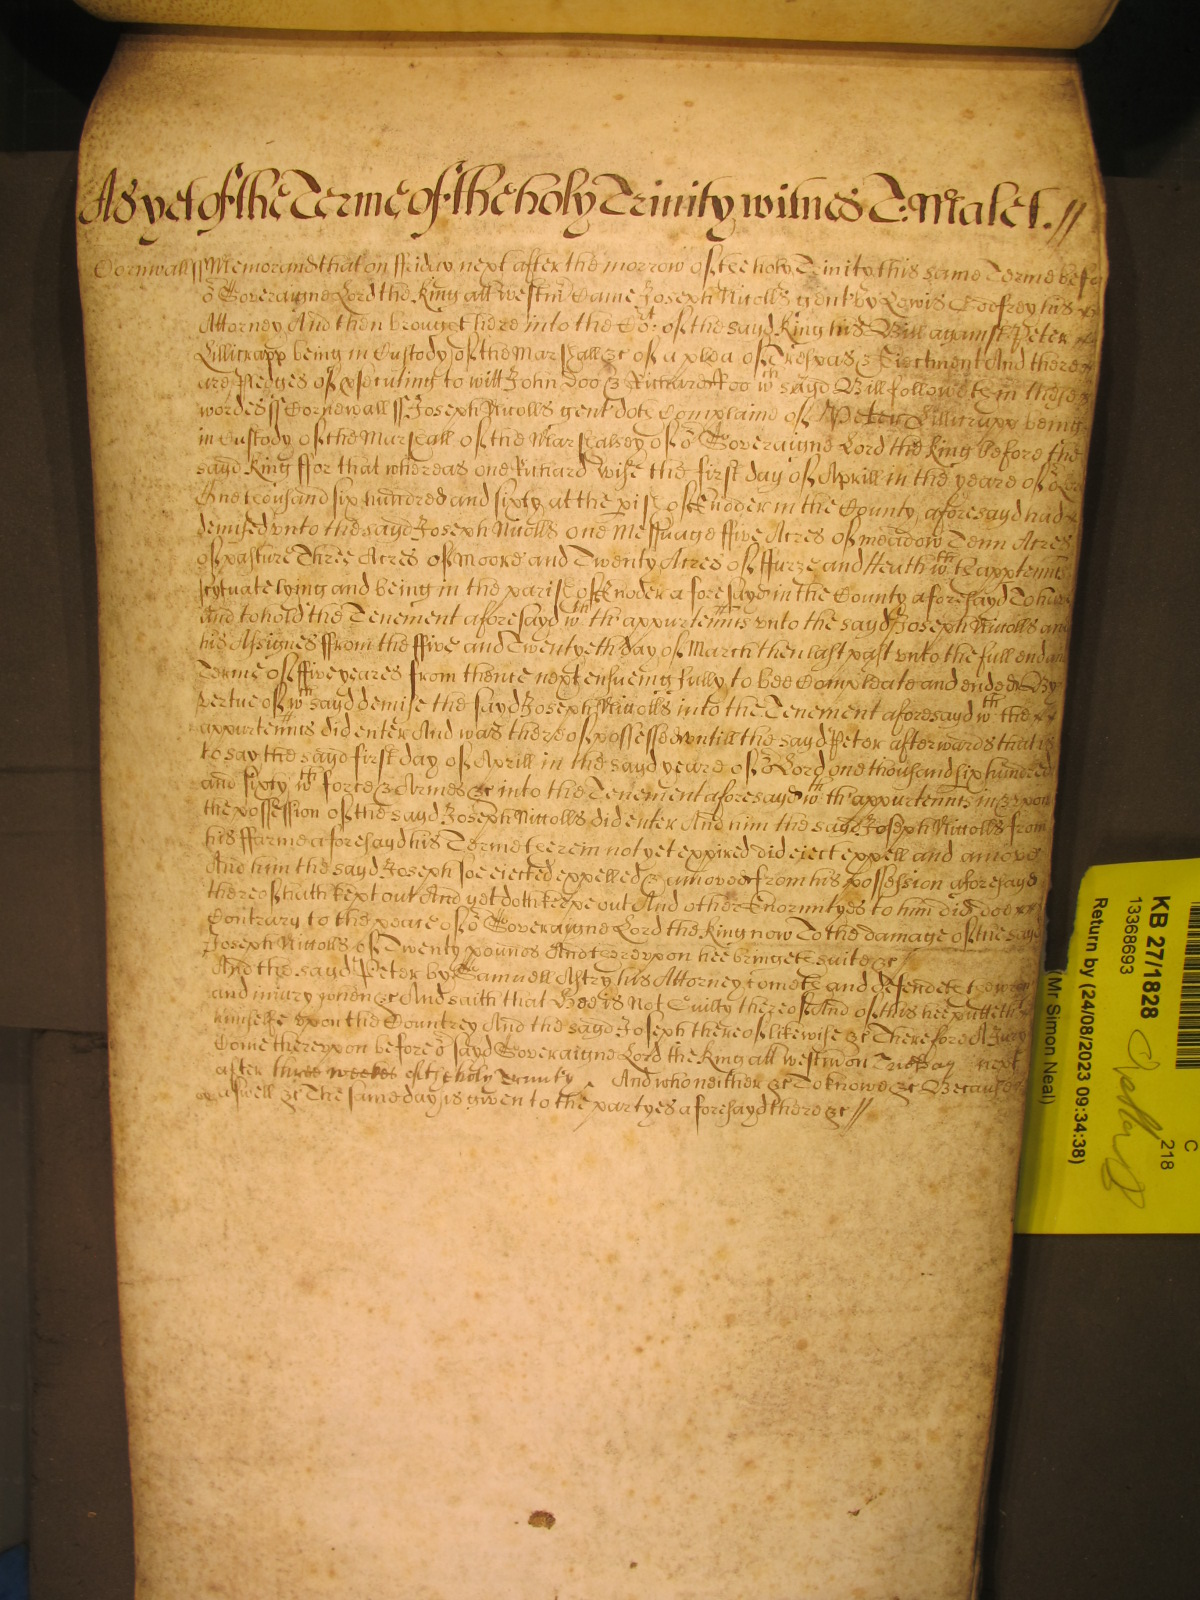 As yet of the Terme of the holy Trinity witnes T: Malet. //
Cornwall ss Memorand that on ffriday next after the morrow of the holy Trinity this same Terme before
or Soveraigne Lord the King att Westmr Came Joseph Nicolls gent by Lewis Godfrey his
Attorney And then brought here into the Cort of the sayd King his Bill against Peter
Lillicrapp being in Custody of the Marshall &c of a plea of Trespas & Eiectment And there
are Pledges of prosecuting to witt John Doo & Richard Roo wch sayd Bill followeth in these
wordes ss Cornewall ss Joseph Nicolls gent doth Complaine of Peter Lillicrapp being
in Custody of the Marshall of the Marshalsey of or Soveraigne Lord the King before the
sayd King ffor that whereas one Richard Wise the first day of Aprill in the yeare of or Lord
One thousand six hundred and sixty at the pish of Enoder in the County aforesayd had
demised vnto the sayd Joseph Nicolls one Messuage ffive Acres of meadow Tenn Acres
of pasture Three Acres of Moore and Twenty Acres of ffurze and Heath wth th'apptennts
scytuate lying and being in the parish of Enoder aforesayd in the County aforesayd To have
And to hold the Tenement aforesayd wth th'appurtennts vnto the sayd Joseph Nicolls and
his Assignes ffrom the ffive and Twentyeth day of March then last past vnto the full end and
Terme of ffive yeares from thence next ensueing fully to bee Compleate and ended By
vertue of wch sayd demise the sayd Joseph Nittolls into the Tenement aforesayd wth the
appurtennts did enter And was thereof possessed vntill the sayd Peter afterwards that is
to say the sayd first day of Aprill in the sayd yeare of or Lord one thousand six hundred
and sixty wth force & Armes &c into the Tenement aforesayd wth th'appurtennts in & vpon
the possession of the sayd Joseph Nittolls did enter And him the sayd Joseph Nittolls from
his ffarme aforesayd his Terme therein not yet expired did eiect expell and amove
And him the sayd Joseph soe eiected expelled & amoved from his possession aforesayd
thereof hath kept out And yet doth keepe out And other Enormityes to him did doe
Contrary to the peace of or Soveraigne Lord the King now To the damage of the sayd
Joseph Nittolls of Twenty pounds And thereupon hee bringeth suite &c
And the sayd Peter by Samuell Astry his Attorney cometh and defendeth the wrong
and iniury when &c And saith that Hee is Not Guilty thereof And of this hee putteth
himselfe vpon the Countrey And the sayd Joseph thereof likewise &c Therefore A Jury
Come thereupon before or sayd Soveraigne Lord the King att Westm on Tuesday next
after three weekes of the holy Trinity And who neither &c To knowe &c Because
aswell &c The same day is given to the partyes aforesayd there &c //
KB 27/1828
13368693
C
218
Return by (24/08/2023 09:34:38)
(Mr Simon Neal)